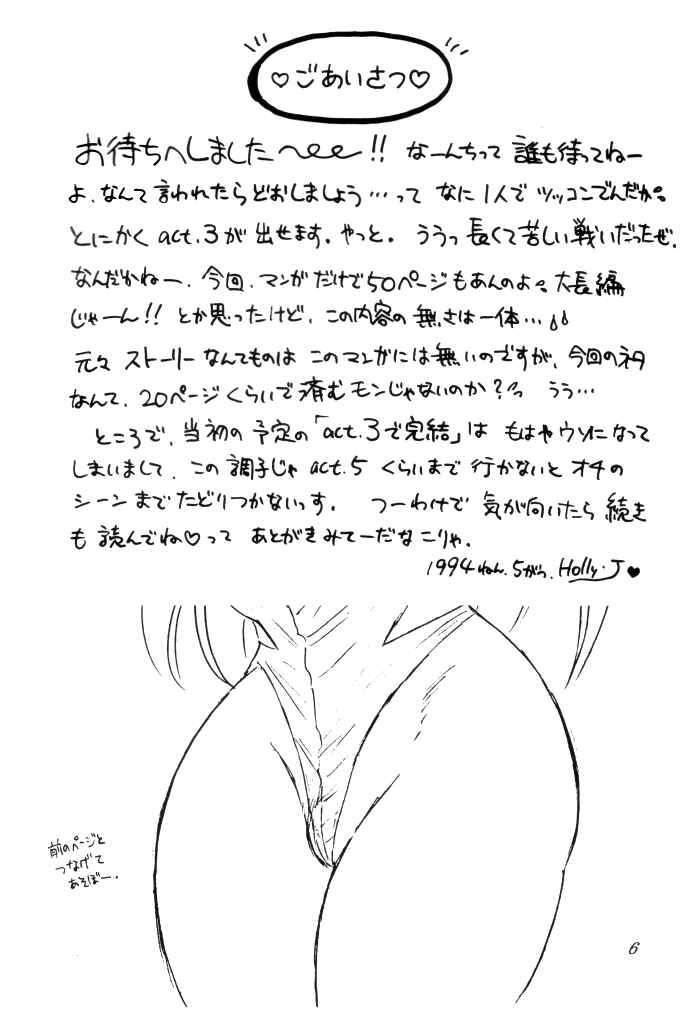 ♡ごあいさつ♡
お待ちへしました〜!! なーんちって 誰も待ってねー
よ、なんて言われたらどおしましょう…って なに1人で ツッコンでんだか。
とにかく act.3が 出せます。やっと。 ううっ 長くて苦しい戦いだったぜ.
なんだかねー、今回、マンガだけで50ページもあんのよ。大長編
じゃーん!! とか思ったけど、この内容の無さは一体…
元々 ストーリーなんてものは このマンガには無いのですが、今回のネタ
なんて、20ページくらいで済むモンじゃないのか? うう…
ところで、当初の予定の「act.3で完結」は もはやウソになって
しまいまして、この調子じゃ act.5 くらいまで 行かないと オチの
シーンまで たどりつかないっす。 つーわけで 気が向いたら 続き
も 読んでね♡って あとがきみてーだな こりゃ.
1994ねん.5がつ. Holly・J♥
前のページと
つなげて
あそぼー.
6